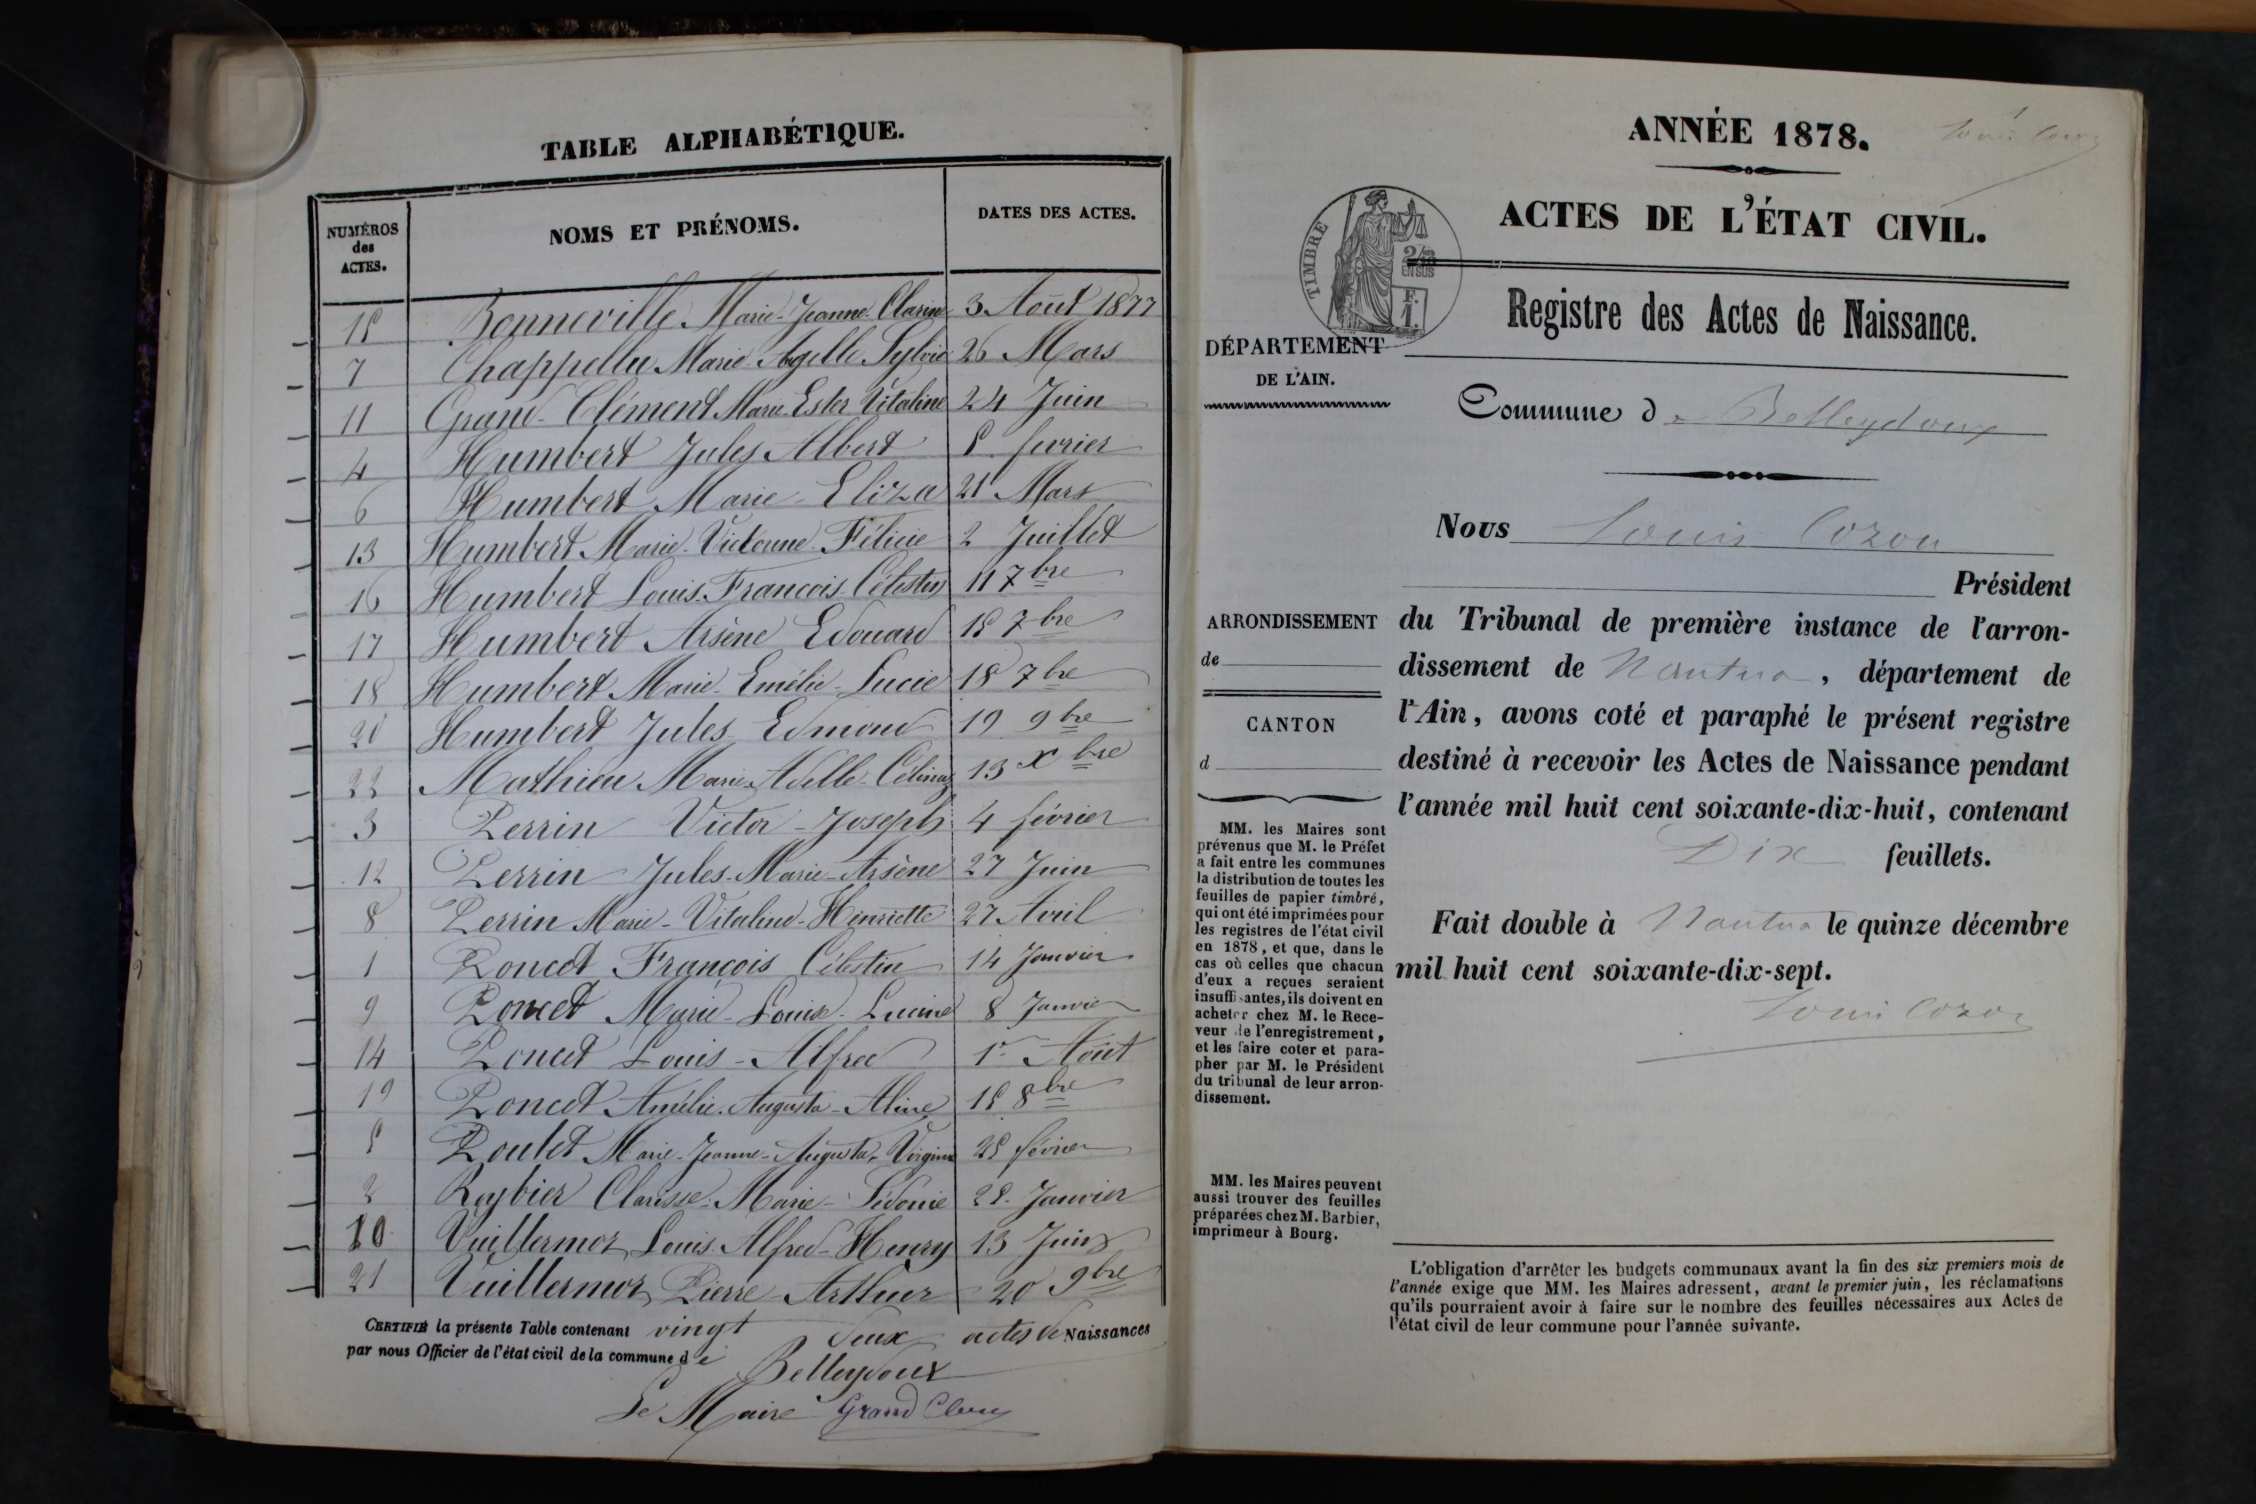 TABLE ALPHABÉTIQUE.
NUMÉROS des ACTES. NOMS ET PRÉNOMS. DATES DES ACTES.
15 Bonneville Marie-Jeanne-Clarine 3 Août 1877
7 Chappellu Marie Angelle Sylvie 26 Mars
11 Grand-Clément Marie-Ester Vitaline 24 Juin
4 Humbert Jules Albert 5 fevrier
6 Humbert Marie-Eliza 21 Mars
13 Humbert Marie-Victorine-Félicie 2 Juillet
16 Humbert Louis-François Célestin 11 7bre
17 Humbert Arsène Edouard 15 7bre
18 Humbert Marie-Emélie-Lucie 18 7bre
20 Humbert Jules Edmond 19 9bre
22 Mathieu Marie-Adelle-Célina 13 Xbre
3 Perrin Victor-Joseph 4 février
12 Perrin Jules-Marie-Arsène 27 Juin
8 Perrin Marie-Vitaline-Henriette 27 Avril
1 Poncet François Célestin 14 Janvier
9 Poncet Marie-Louise-Lucine 8 Janvier
14 Poncet Louis-Alfred 1er Août
19 Poncet Amélie-Augusta-Aline 15 8bre
5 Poulet Marie-Jeanne-Augusta-Virginie 25 février
2 Reybier Clarisse-Marie-Sidonie 25 Janvier
10 Vuillermoz Louis-Alfred-Henry 13 Juin
21 Vuillermoz Pierre-Arthur 20 9bre
CERTIFIÉ la présente Table contenant vingt deux actes de Naissances
par nous Officier de l'état civil de la commune de Belleydoux
Le Maire Grand Clém
ANNÉE 1878. Louis Cozon
ACTES DE L'ÉTAT CIVIL.
TIMBRE
2/10
EN SUS
F.
1.
Registre des Actes de Naissance.
DÉPARTEMENT
DE L'AIN.
Commune de Belleydoux
Nous Louis Cozon
Président
ARRONDISSEMENT
de
CANTON
d
du Tribunal de première instance de l'arron-
dissement de Nantua, département de
l'Ain, avons coté et paraphé le présent registre
destiné à recevoir les Actes de Naissance pendant
l'année mil huit cent soixante-dix-huit, contenant
Dix feuillets.
Fait double à Nantua le quinze décembre
mil huit cent soixante-dix-sept.
Louis Cozon
MM. les Maires sont
prévenus que M. le Préfet
a fait entre les communes
la distribution de toutes les
feuilles de papier timbré,
qui ont été imprimées pour
les registres de l'état civil
en 1878, et que, dans le
cas où celles que chacun
d'eux a reçues seraient
insuffisantes, ils doivent en
acheter chez M. le Rece-
veur de l'enregistrement,
et les faire coter et para-
pher par M. le Président
du tribunal de leur arron-
dissement.
MM. les Maires peuvent
aussi trouver des feuilles
préparées chez M. Barbier,
imprimeur à Bourg.
L'obligation d'arrêter les budgets communaux avant la fin des six premiers mois de
l'année exige que MM. les Maires adressent, avant le premier juin, les réclamations
qu'ils pourraient avoir à faire sur le nombre des feuilles nécessaires aux Actes de
l'état civil de leur commune pour l'année suivante.